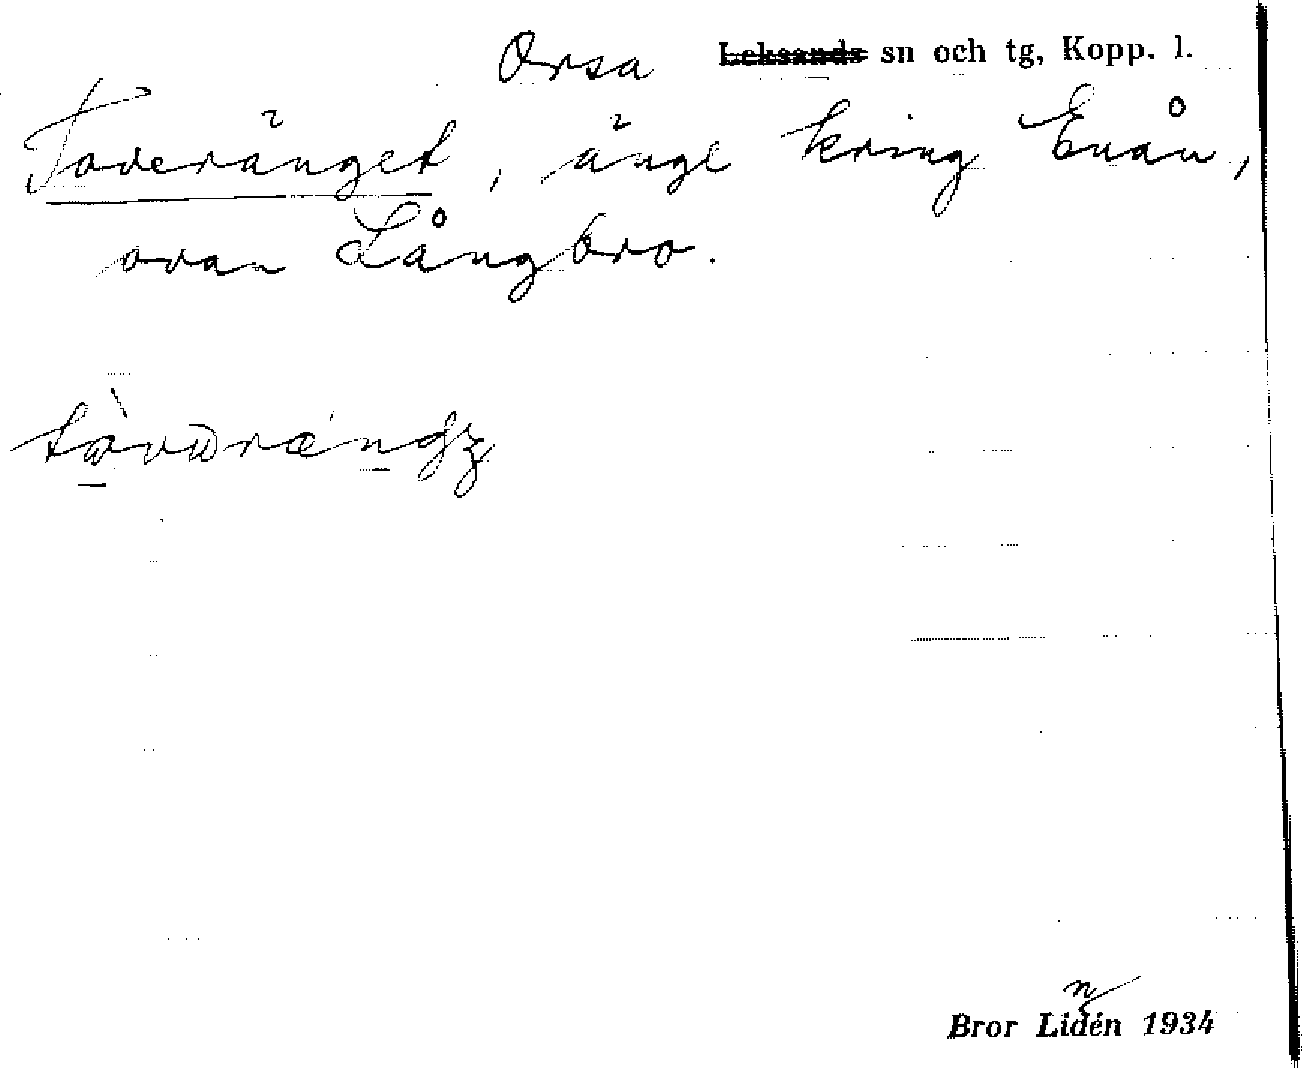 Orsa Leksands sn och tg, Kopp. l.
Toveränget, änge kring Enån,
ovan Långbro.
Bror Lindén 1934